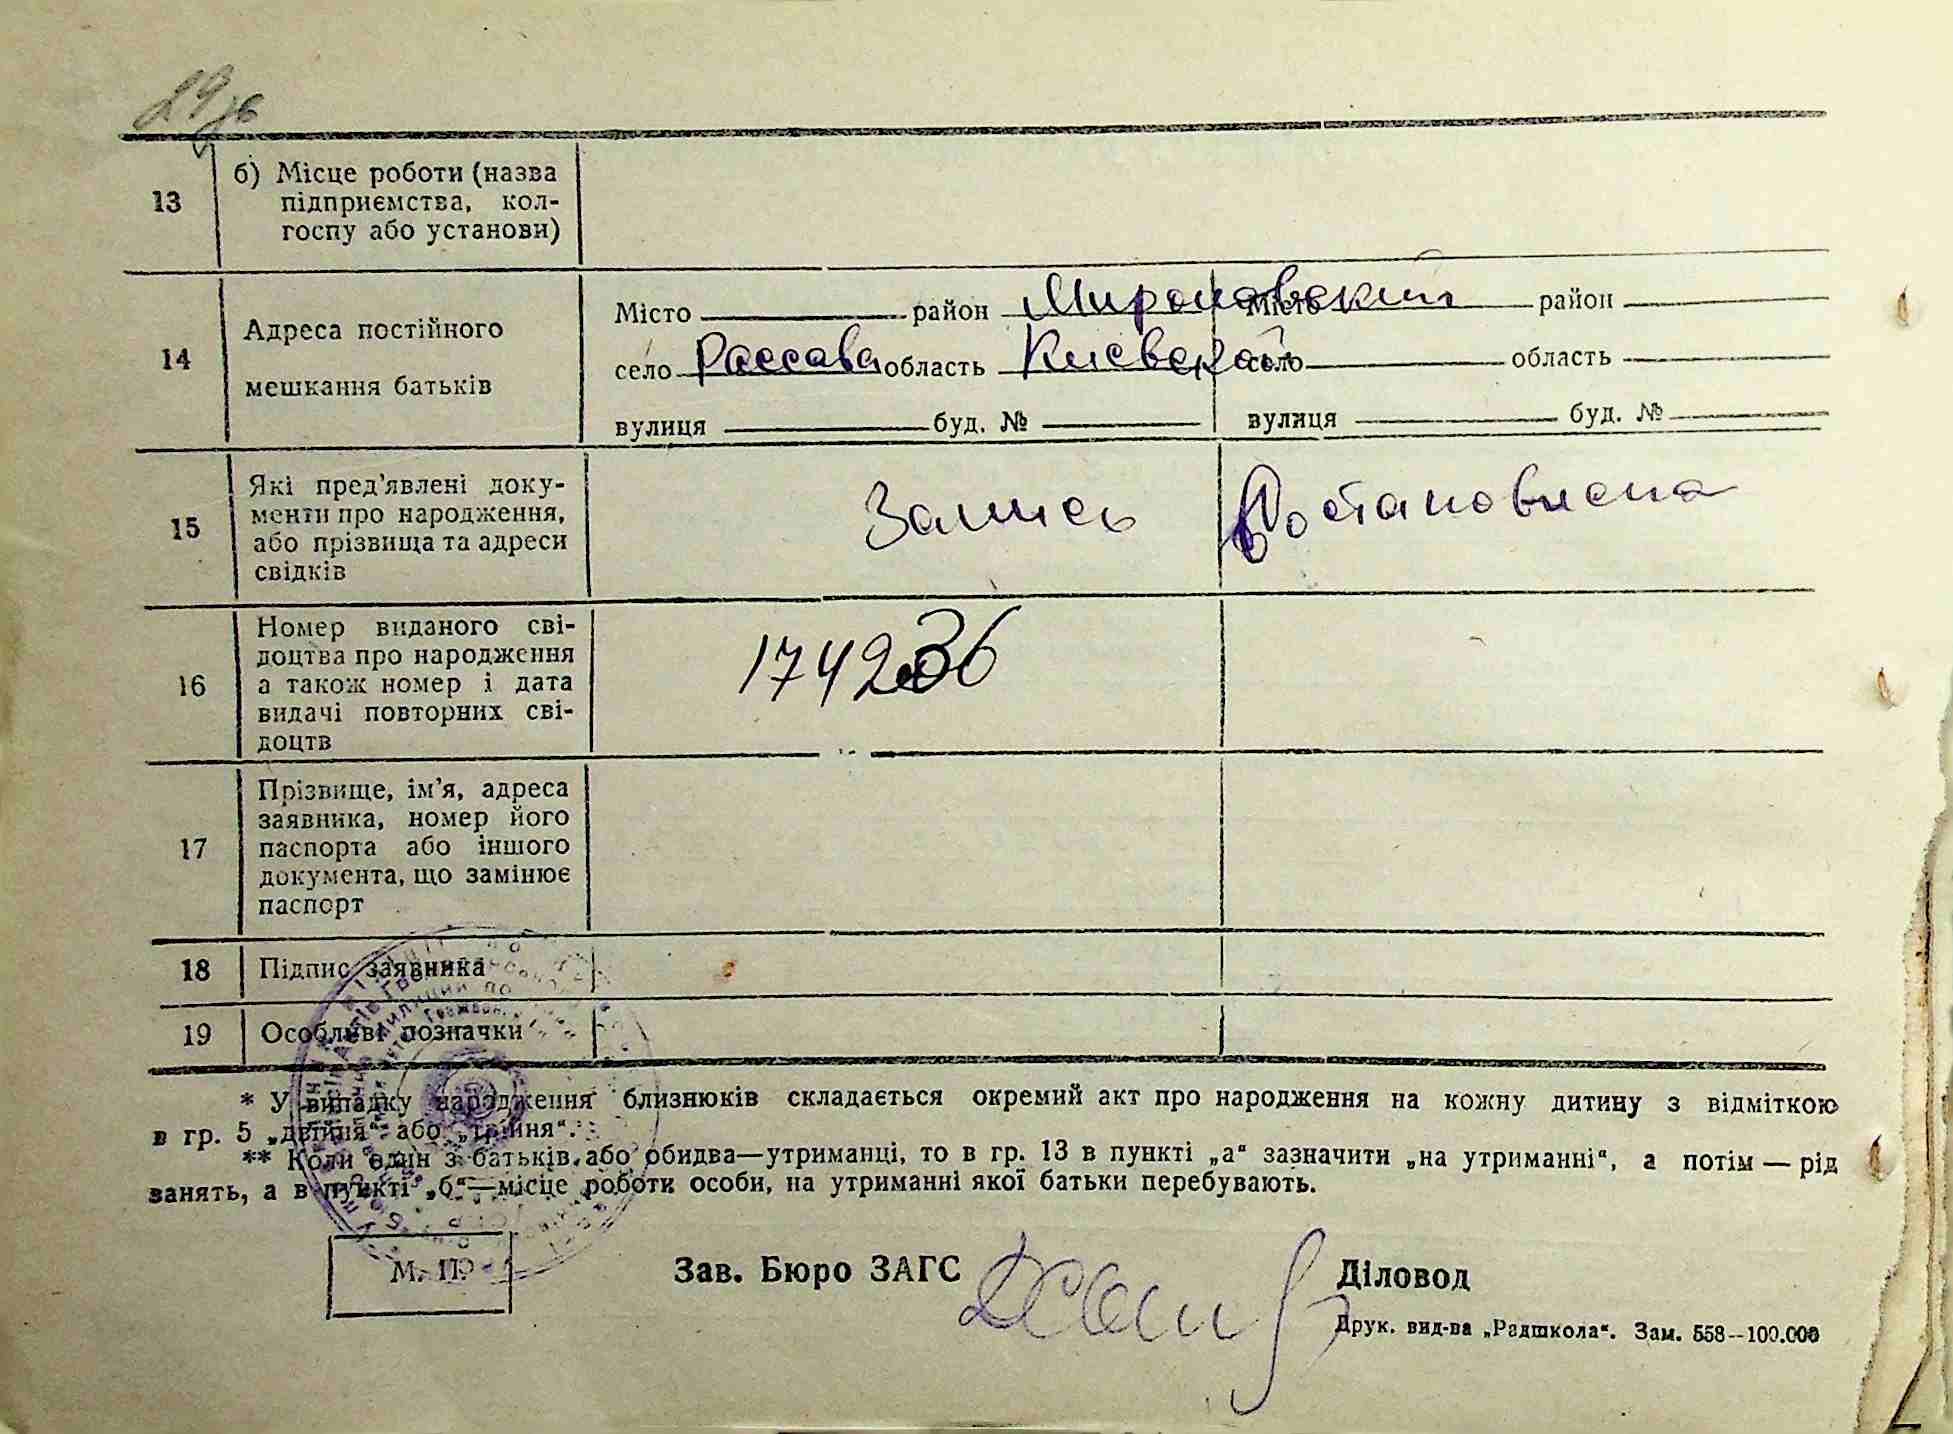 29зв
13
б) Місце роботи (назва
підприємства, кол-
госпу або установи)
14
Адреса постійного
мешкання батьків
Місто район Мироновский Місто район
село Россава область Киевской село область
вулиця буд. № вулиця буд. №
15
Які пред'явлені доку-
менти про народження,
або прізвища та адреси
свідків
Запись Востановлена
16
Номер виданого сві-
доцтва про народження
а також номер і дата
видачі повторних сві-
доцтв
174236
17
Прізвище, ім'я, адреса
заявника, номер його
паспорта або іншого
документа, що замінює
паспорт
18 Підпис заявника
19 Особливі позначки
* У випадку народження близнюків складається окремий акт про народження на кожну дитину з відміткою
в гр. 5 „двійня“ або „трійня“.
** Коли один з батьків або обидва—утриманці, то в гр. 13 в пункті „а“ зазначити „на утриманні“, а потім — рід
занять, а в пункті „б“—місце роботи особи, на утриманні якої батьки перебувають.
М. П.
Зав. Бюро ЗАГС
Діловод
Друк. вид-ва „Радшкола“. Зам. 558—100.000